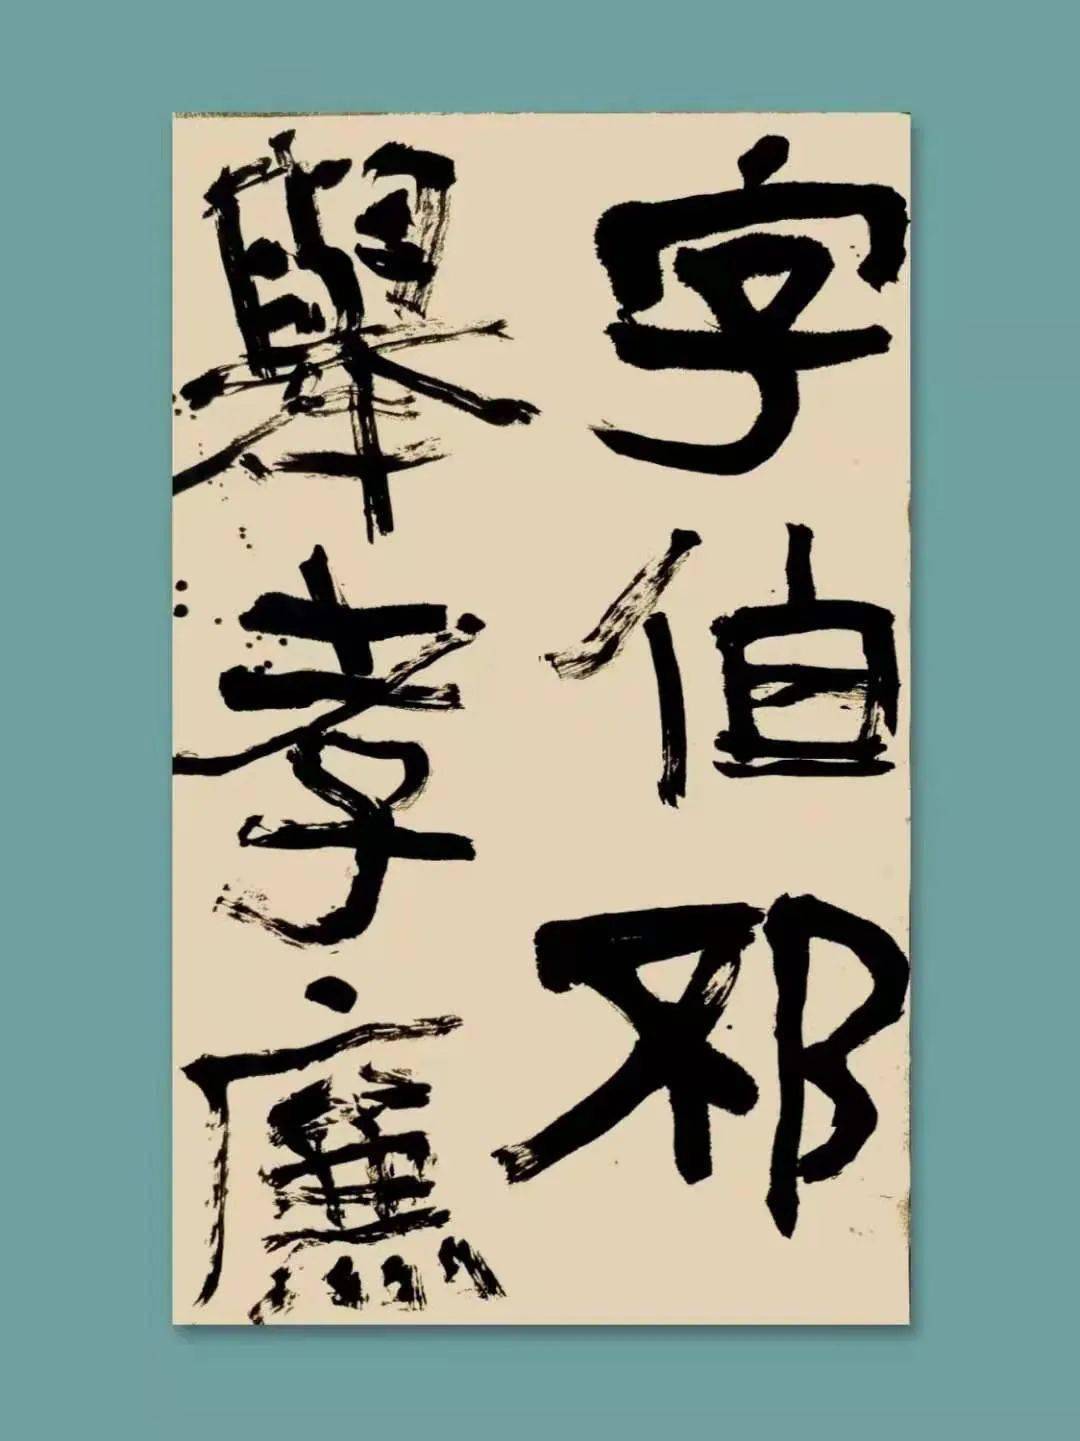 字伯邳
舉孝廉